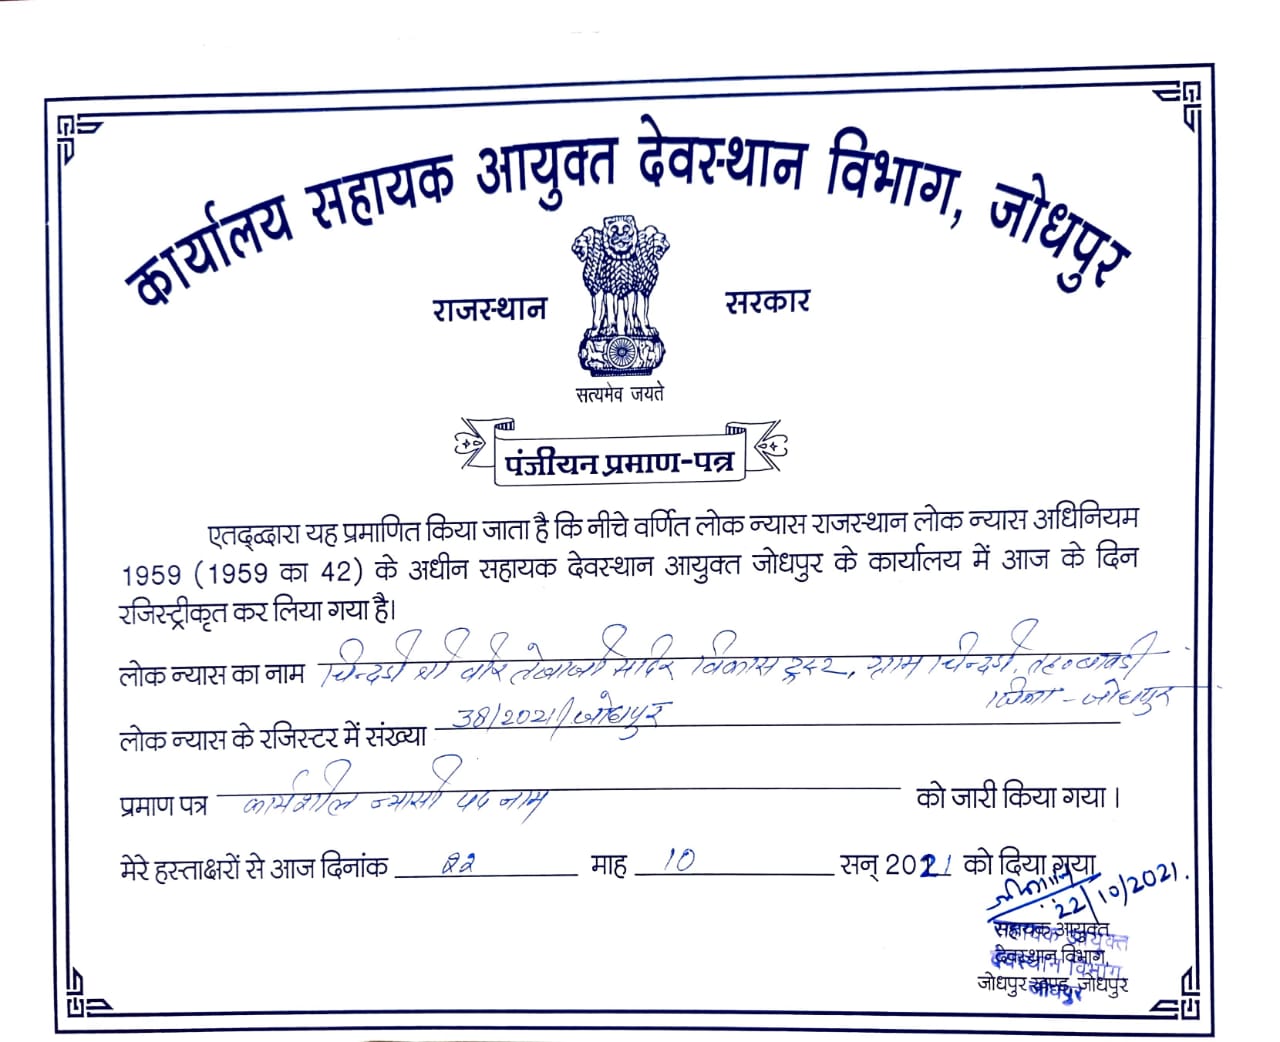 कार्यालय सहायक आयुक्त देवस्थान विभाग, जोधपुर
राजस्थान सरकार
सत्यमेव जयते
पंजीयन प्रमाण-पत्र
एतद्द्वारा यह प्रमाणित किया जाता है कि नीचे वर्णित लोक न्यास राजस्थान लोक न्यास अधिनियम
1959 (1959 का 42) के अधीन सहायक देवस्थान आयुक्त जोधपुर के कार्यालय में आज के दिन
रजिस्ट्रीकृत कर लिया गया है।
लोक न्यास का नाम चिन्दडी श्री वीर तेजाजी मंदिर विकास ट्रस्ट, ग्राम चिन्दडी, तह० बावडी
जिला - जोधपुर
लोक न्यास के रजिस्टर में संख्या 38/2021/जोधपुर
प्रमाण पत्र कार्यशील न्यासी पद नाम को जारी किया गया ।
मेरे हस्ताक्षरों से आज दिनांक 22 माह 10 सन् 2021 को दिया गया
22/10/2021.
सहायक आयुक्त
देवस्थान विभाग,
जोधपुर खण्ड, जोधपुर
सहायक आयुक्त
देवस्थान विभाग
जोधपुर